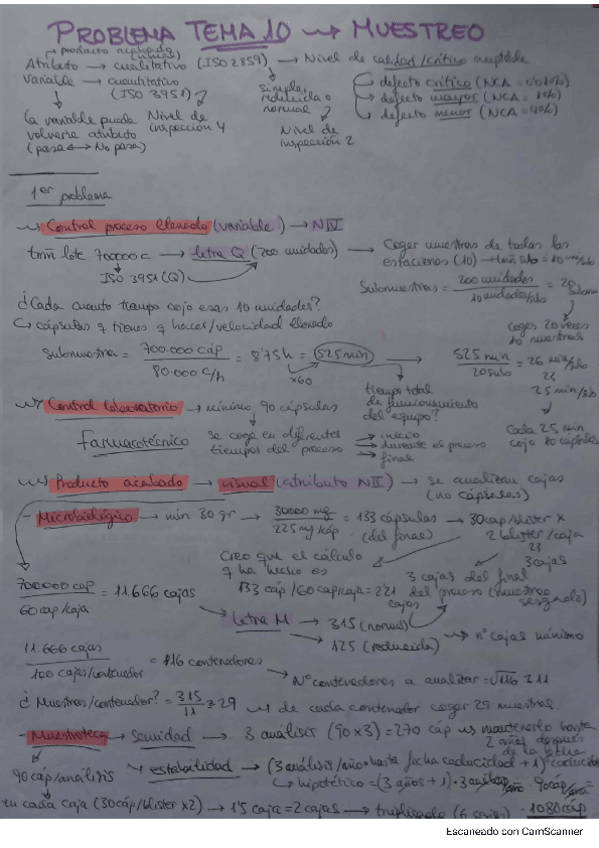 PROBLEMA TEMA 10 → MUESTREO
Atributo → cualitativo (ISO 2859) → Nivel de calidad/crítico aceptable
Variable → cuantitativo
(ISO 3951)
simple, reducida o normal
Nivel de inspección 2
Nivel de inspección 4
defecto crítico (NCA =
defecto mayor (NCA = 1%)
defecto menor (NCA = 4%)
la variable puede volverse atributo
(pasa ↔ No pasa)
1er problema
Control proceso llenado (variable) → NIV
tmñ lote 700000 c → letra Q (200 unidades) → Coger muestras de todas las estaciones (10) →
ISO 3951 (Q)
Submuestras = 200 unidades / 10 unidades/sub = 20
coges 20 veces 10 muestras
¿Cada cuanto tiempo cojo esas 10 unidades?
↳ cápsulas q tienes q hacer/velocidad llenado
Submuestras = 700.000 cáp / 80.000 c/h = 8'75 h = 525 min → 525 min / 20 sub = 26 min/sub
x60
25 min/sub
tiempo total de funcionamiento del equipo?
Cada 25 min cojo 10 cápsulas
Control laboratorio → mínimo 90 cápsulas
Farmacotécnico
se coge en diferentes tiempos del proceso
→ inicio
→ durante el proceso
→ final
Producto acabado → visual (atributo NII) → se analizan cajas (no cápsulas)
- Microbiológico → min 30 gr → 30000 mg / 225 mg/cáp = 133 cápsulas (del final) → 30 cap/blister x 2 blister/caja
3 cajas
Creo que el cálculo q ha hecho es
133 cáp / 60 cap/caja = 2'21 cajas
3 cajas del final del proceso (muestreo sesgado)
700000 cáp / 60 cap/caja = 11.666 cajas
letra M → 315 (normal)
125 (reducida) → nº cajas mínimo
11.666 cajas / 100 cajas/contenedor = 116 contenedores
Nº contenedores a analizar = √116 ≅ 11
¿Muestras/contenedor? = 315 / 11 ≅ 29 → de cada contenedor coger 29 muestras.
- Muestroteca → Sanidad → 3 análisis (90x3) = 270 cáp → mantenerlo hasta 2 años después de la fecha
90 cáp/análisis
→ estabilidad → (3 análisis/año · hasta fecha caducidad + 1)
↳ hipotético = (3 años + 1) · 3 análisis/año · 90 cáp/
en cada caja (30 cáp/blister x2) → 1'5 caja = 2 cajas → triplicado · 1080 cáp
Escaneado con CamScanner